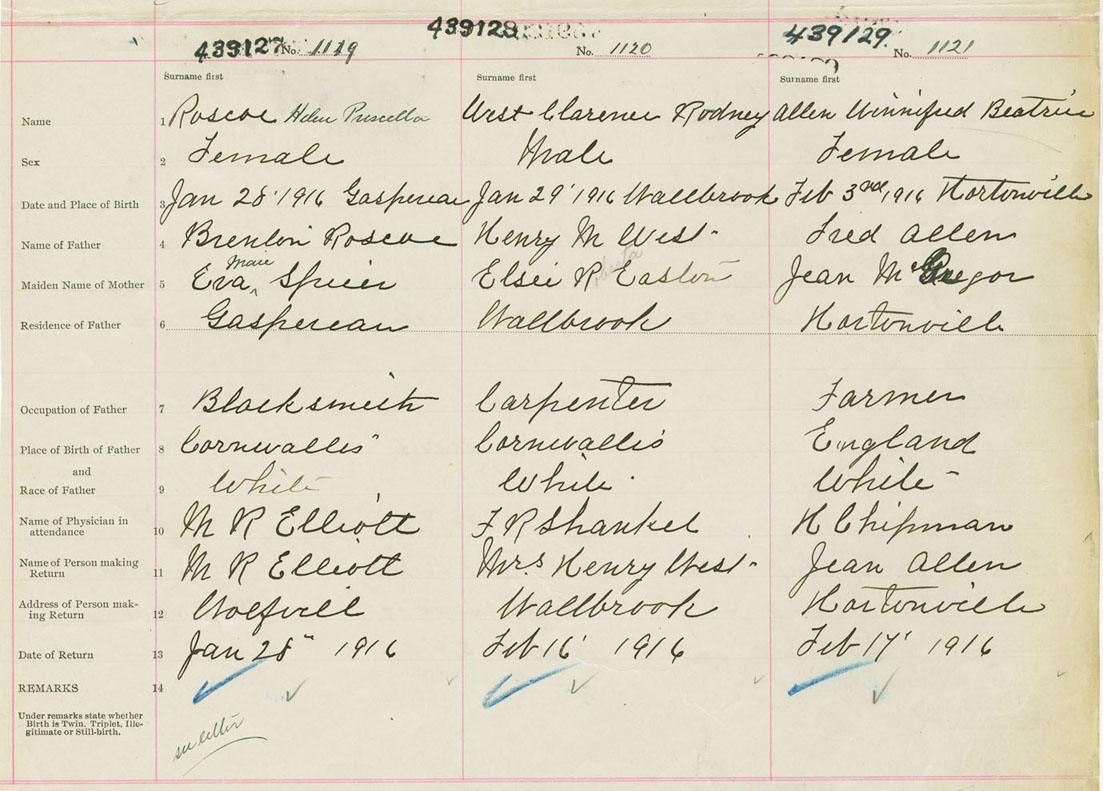 439127 No. 1119 439128 No. 1120 439129 No. 1121
Surname first Surname first Surname first
Name 1 Roscoe Helen Priscilla West Clarence Rodney Allen Winnifred Beatrice
Sex 2 Female Male Female
Date and Place of Birth 3 Jan 28' 1916 Gaspereau Jan 29' 1916 Wallbrook Feb 3rd 1916 Hortonville
Name of Father 4 Brenton Roscoe Henry M West Fred Allen
Maiden Name of Mother 5 Eva Spicer Elsie R Easton Jean McGregor
Residence of Father 6 Gaspereau Wallbrook Hortonville
Occupation of Father 7 Blacksmith Carpenter Farmer
Place of Birth of Father 8 Cornwallis Cornwallis England
and
Race of Father 9 White White White
Name of Physician in attendance 10 M R Elliott F R Shankel H Chipman
Name of Person making Return 11 M R Elliott Mrs Henry West Jean Allen
Address of Person mak-ing Return 12 Wolfvill Wallbrook Hortonville
Date of Return 13 Jan 28" 1916 Feb 16' 1916 Feb 17' 1916
REMARKS 14
Under remarks state whether
Birth is Twin, Triplet, Ille-
gitimate or Still-birth.
see letter